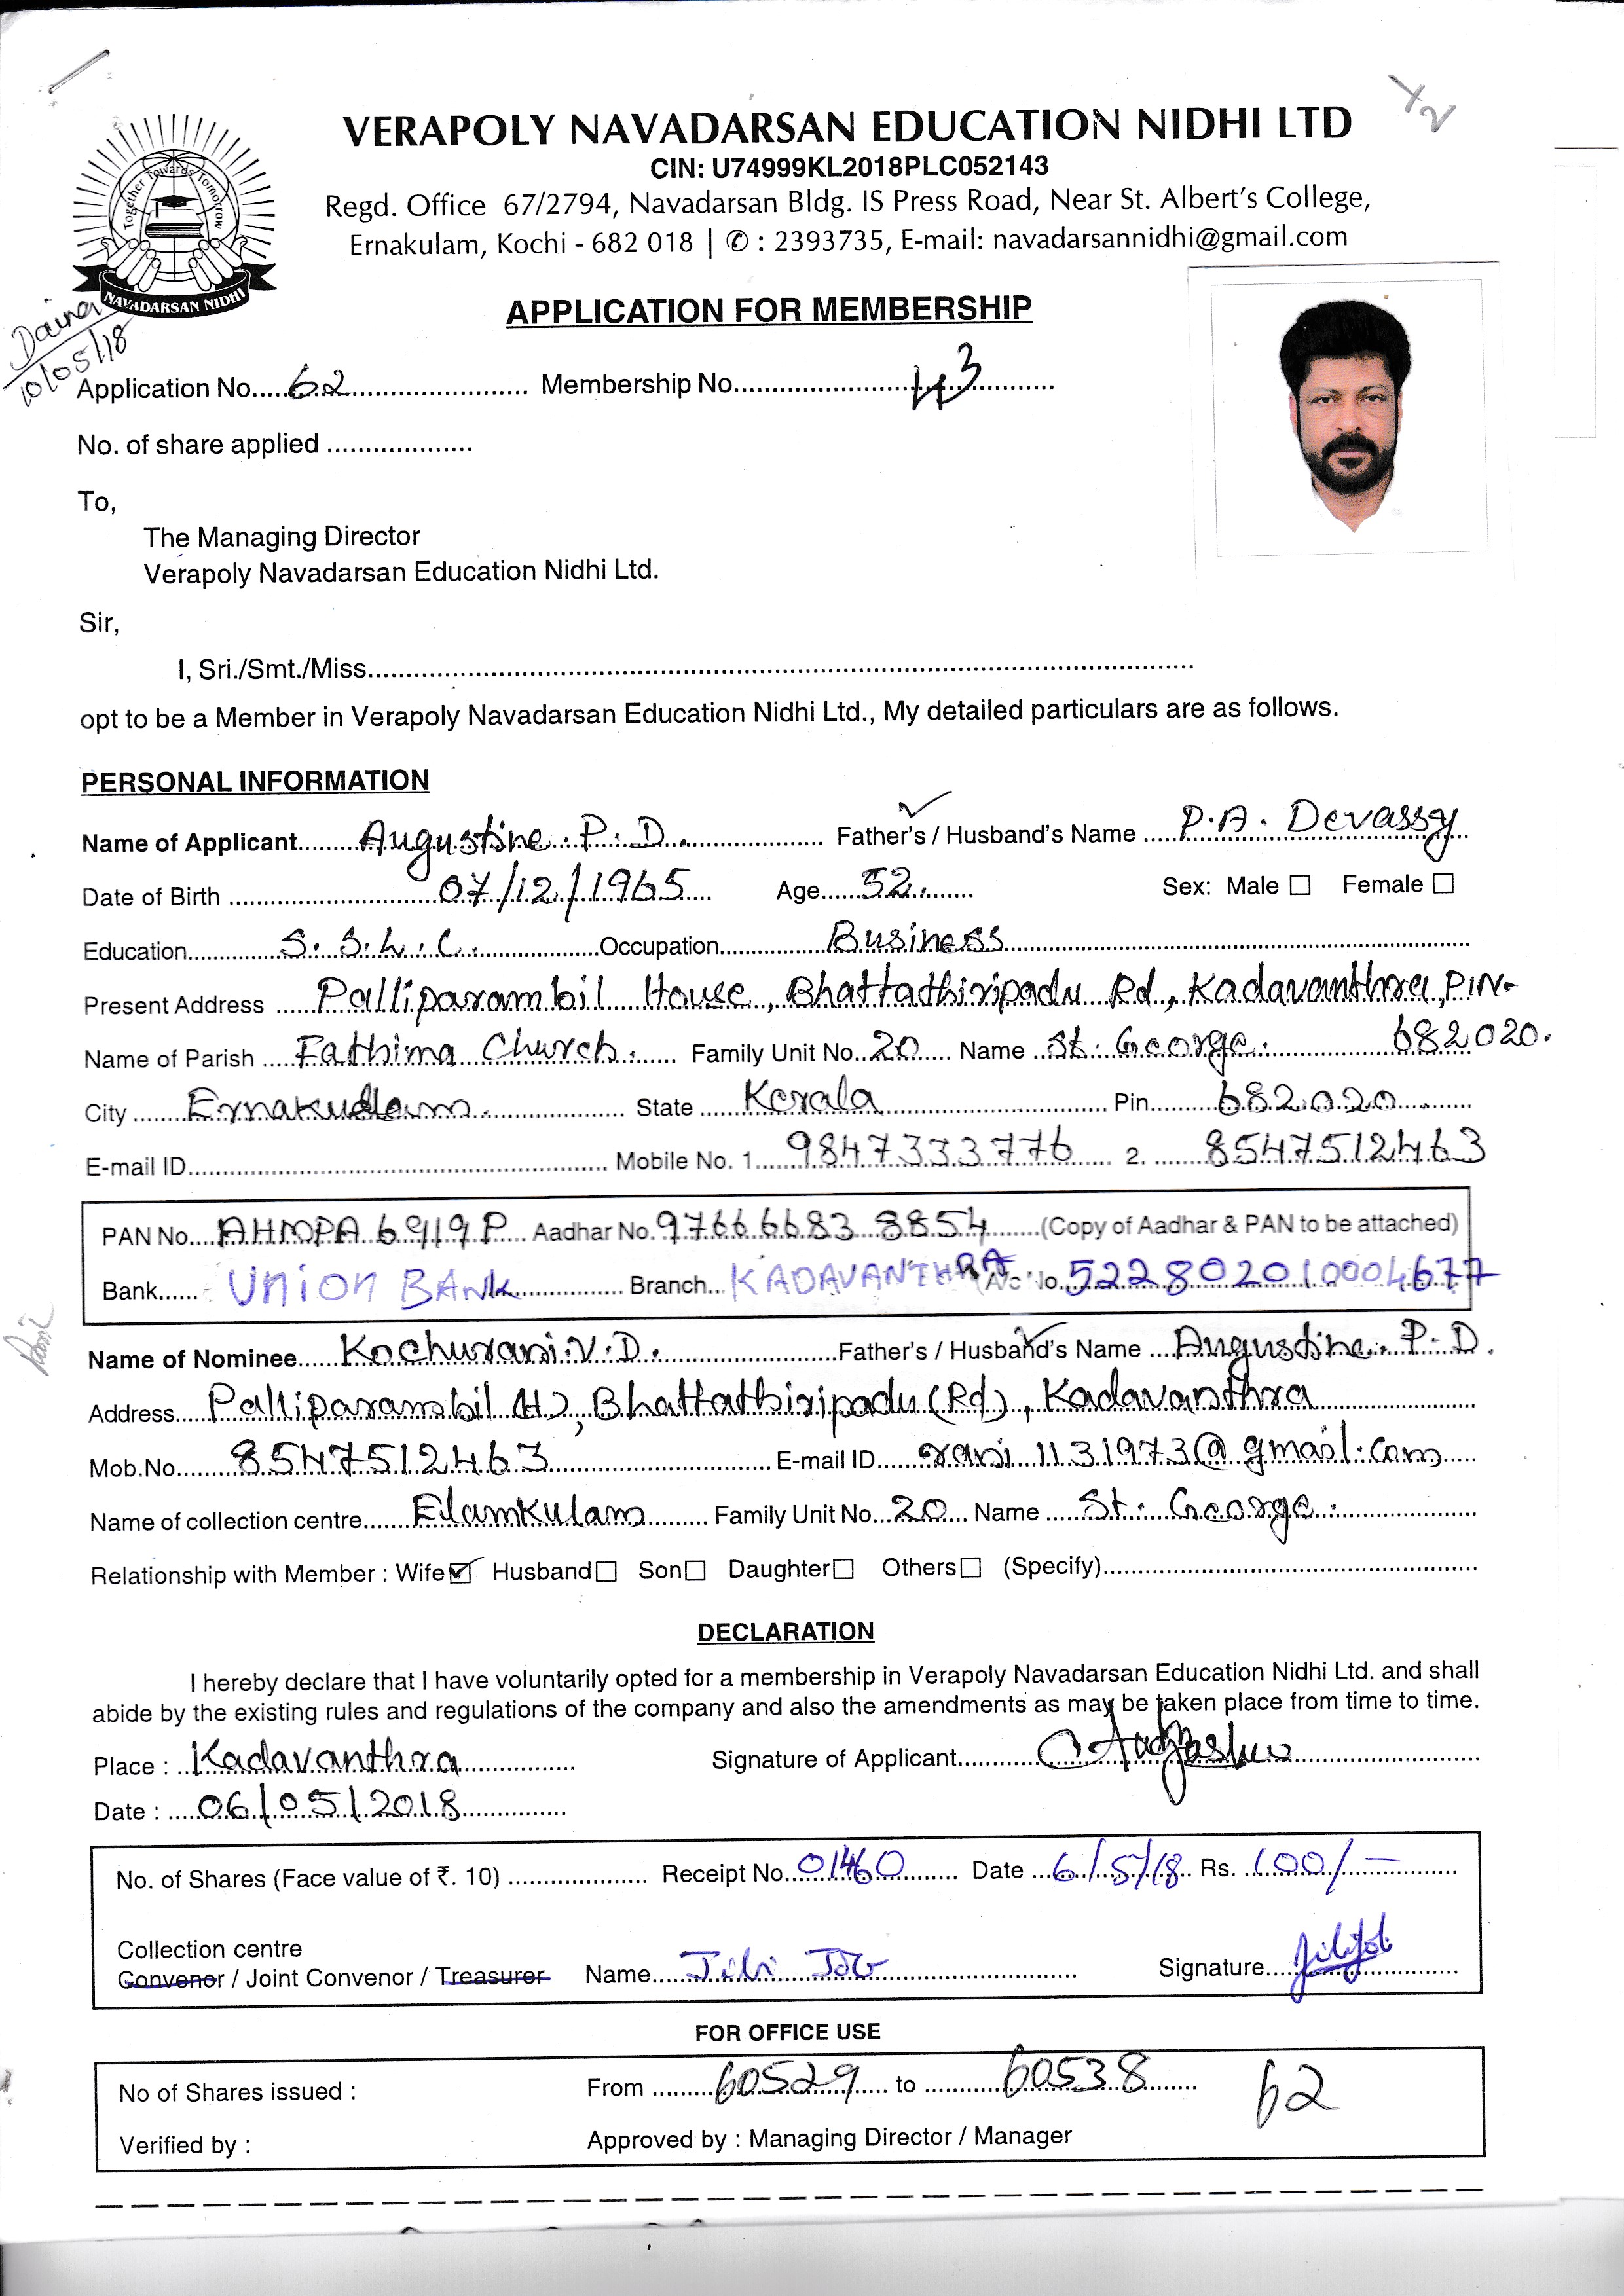 VERAPOLY NAVADARSAN EDUCATION NIDHI LTD
CIN: U74999KL2018PLC052143
Regd. Office 67/2794, Navadarsan Bldg. IS Press Road, Near St. Albert's College,
Ernakulam, Kochi - 682 018 | ✆ : 2393735, E-mail: navadarsannidhi@gmail.com
Together Towards Tomorrow
NAVADARSAN NIDHI
10/05/18
APPLICATION FOR MEMBERSHIP
Application No.....62.................... Membership No.....................
No. of share applied ...................
To,
The Managing Director
Verapoly Navadarsan Education Nidhi Ltd.
Sir,
I, Sri./Smt./Miss...............................................................
opt to be a Member in Verapoly Navadarsan Education Nidhi Ltd., My detailed particulars are as follows.
PERSONAL INFORMATION
Name of Applicant.........Augustine. P. D.................. Father's / Husband's Name .....P.A. Devassy
Date of Birth .....................07/12/1965.... Age......52......... Sex: Male ☐ Female ☐
Education..............S. S. L. C................Occupation...............Business.....................
Present Address ......Palliparambil House, Bhattathiripadu Rd, Kadavanthra, PIN-
682020.
Name of Parish .....Fathima Church....... Family Unit No..20..... Name ..St. George.................
City ........Ernakulam................... State ......Kerala........................ Pin.........682020..........
E-mail ID................................................ Mobile No. 1.....9847333776...... 2. .......8547512463
PAN No....AHMPA6919P... Aadhar No.976666838854.......(Copy of Aadhar & PAN to be attached)
Bank...... UNION BANK............... Branch...KADAVANTHRA A/c No.522802010004677
Name of Nominee......Kochurani. V. D.........................Father's / Husband's Name ...Augustine. P. D.
Address.....Palliparambil (H), Bhattathiripadu (Rd), Kadavanthra....................
Mob.No.........8547512463............................ E-mail ID......rani1131973@gmail.com.....
Name of collection centre.......Elamkulam......... Family Unit No...20... Name .....St. George.................
Relationship with Member : Wife☑ Husband☐ Son☐ Daughter☐ Others☐ (Specify)..........................................
DECLARATION
I hereby declare that I have voluntarily opted for a membership in Verapoly Navadarsan Education Nidhi Ltd. and shall
abide by the existing rules and regulations of the company and also the amendments as may be taken place from time to time.
Place : ..Kadavanthra............... Signature of Applicant..................................
Date : .....06/05/2018..............
No. of Shares (Face value of ₹. 10) ................... Receipt No...01460......... Date ...6/5/18.. Rs. ..100/-..........
Collection centre
Convenor / Joint Convenor / Treasurer Name.....Jibi Job........................ Signature..................
FOR OFFICE USE
No of Shares issued : From .........60529..... to ...........60538....... 62
Verified by : Approved by : Managing Director / Manager